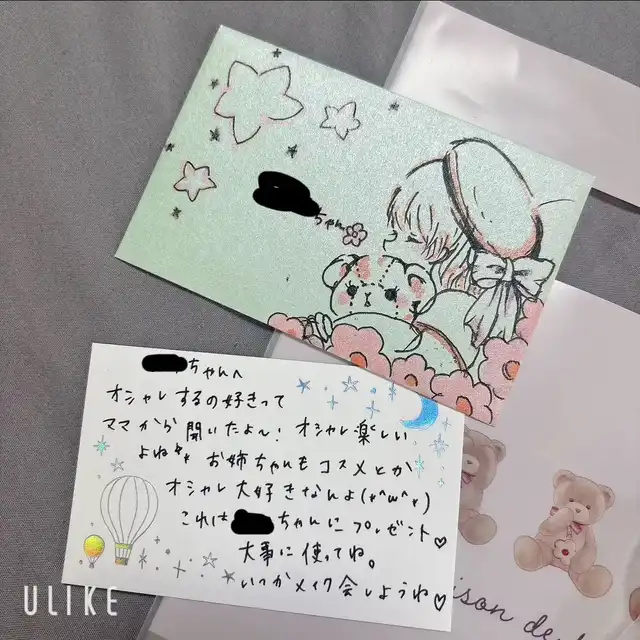 ちゃん
ちゃんへ
オシャレするの好きって
ママから聞いたよ〜! オシャレ楽しい
よね お姉ちゃんもコスメとか
オシャレ大好きなんよ(*^ω^*)
これは ちゃんにプレゼント♡
大事に使ってね。
いつかメイク会しようね♡
ison de
ULIKE